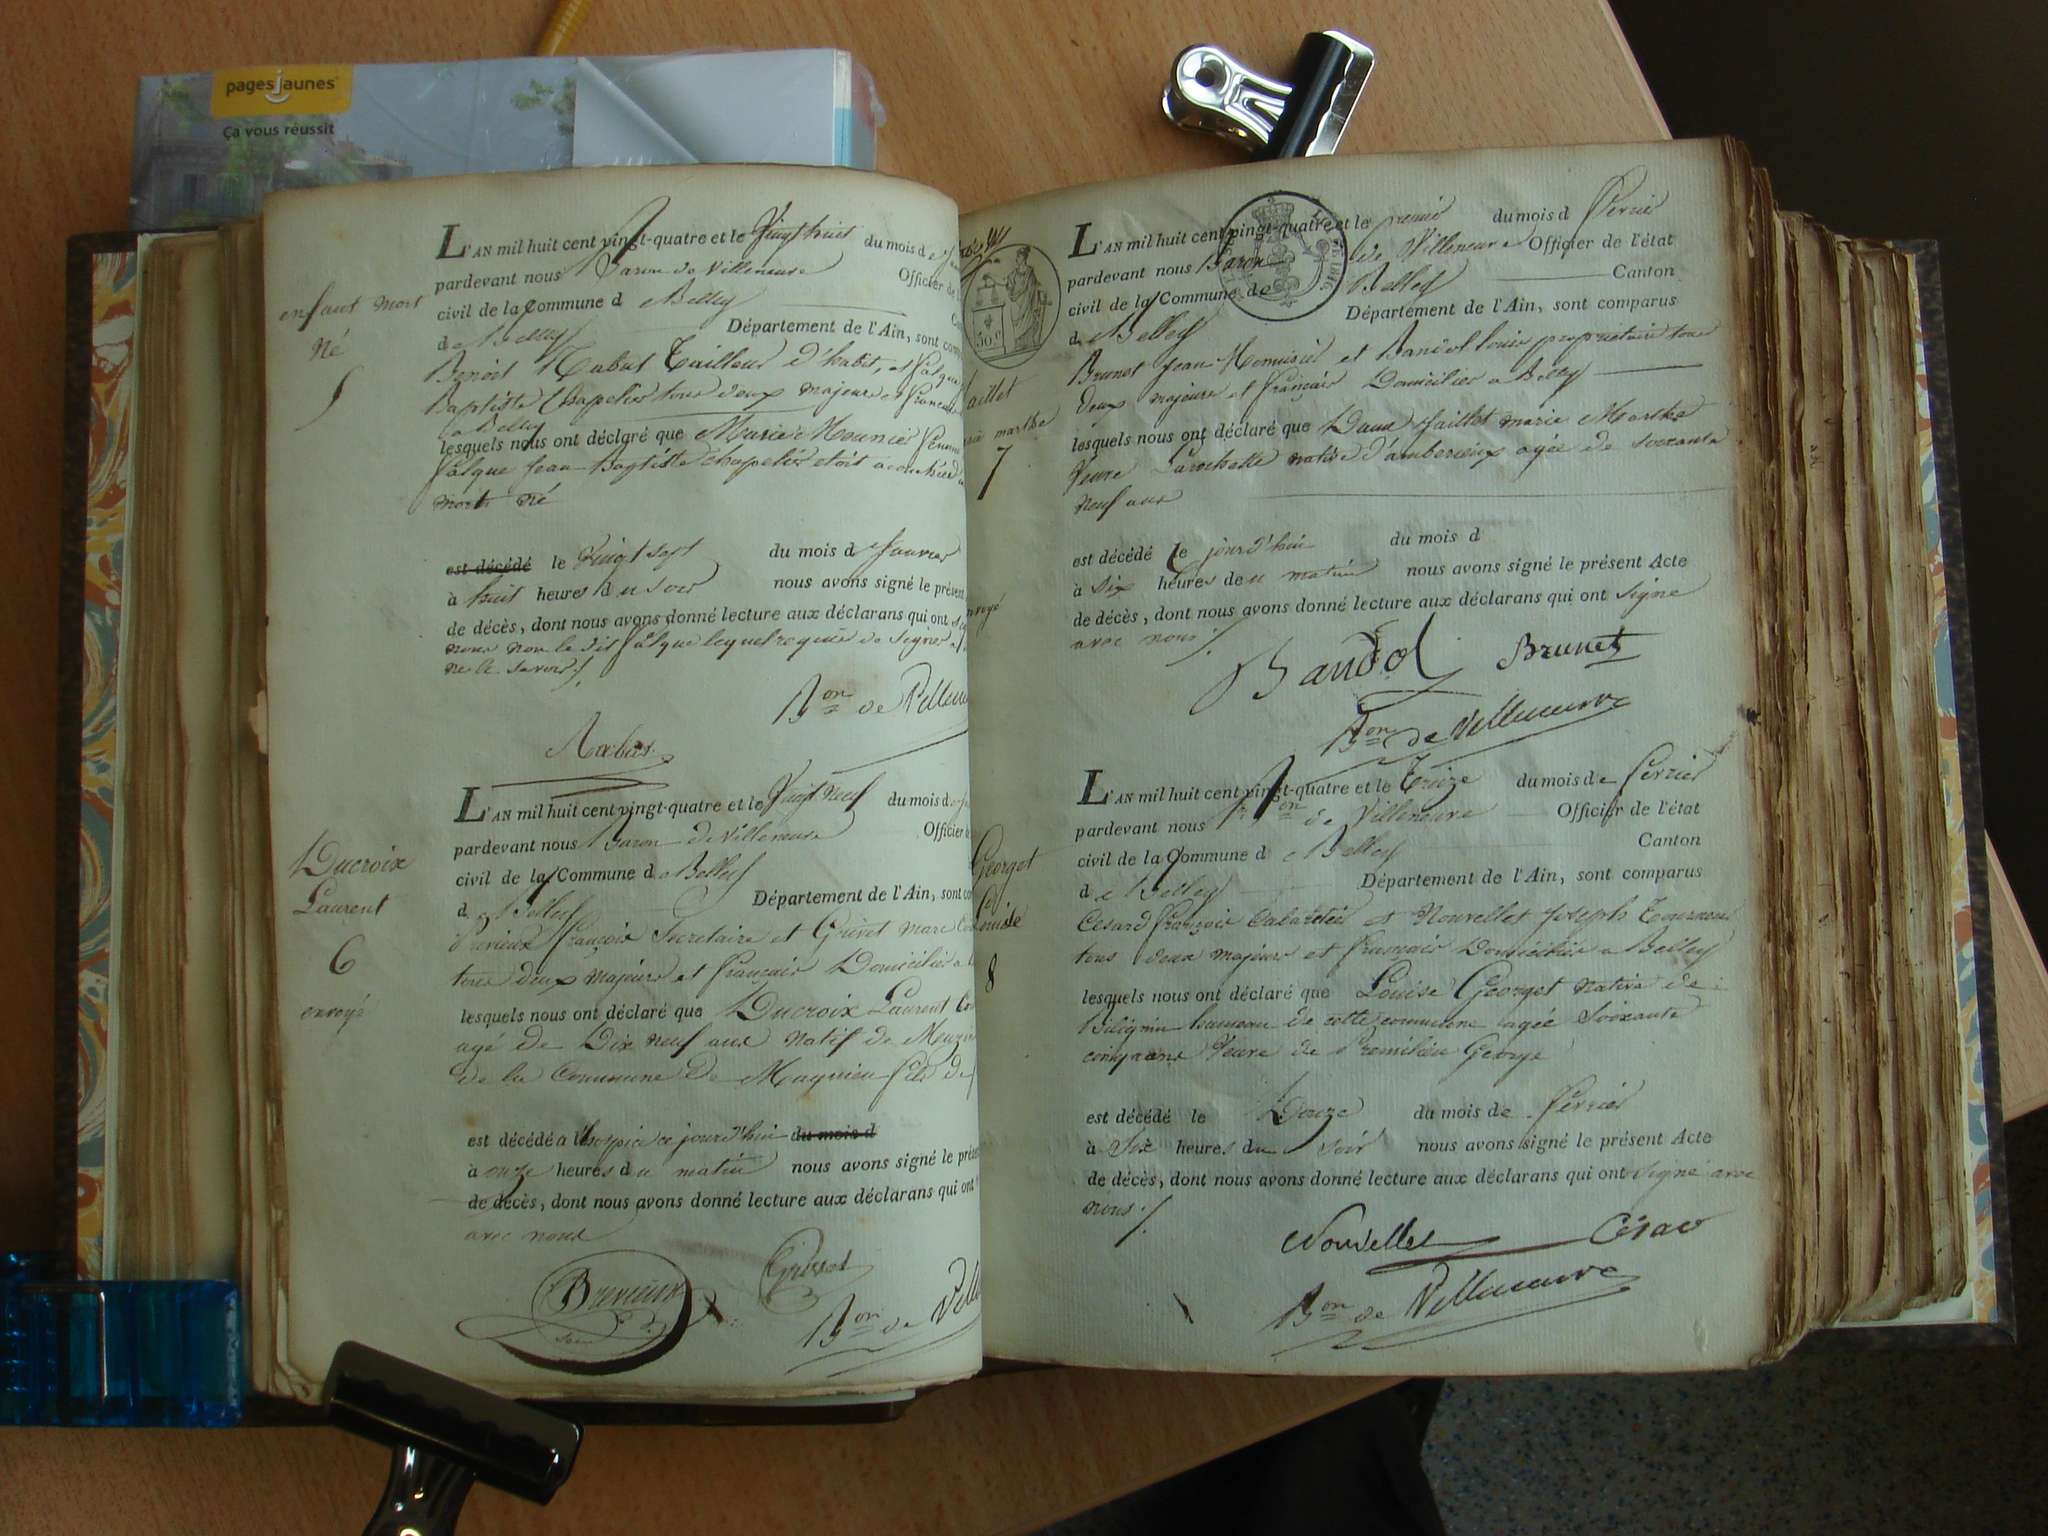 pagesjaunes
Ça vous réussit
enfant mort
né
5
L'AN mil huit cent vingt-quatre et le Vingt huit du mois de
pardevant nous Baron de Villeneuve Officier de
civil de la Commune d Belley
de Belley Département de l'Ain, sont
Benoit Rabut Tailleur d'habit, et
Baptiste Chapelier tous deux majeurs et francais
a Belley
lesquels nous ont déclaré que Marie Mounier femme
falque Jean Baptiste chapelier etoit acouchée
mort né
est décédé le Vingt sept du mois d Janvier
à huit heures du soir nous avons signé le présent
de décès, dont nous avons donné lecture aux déclarans qui ont
nous non le dit falque lequel requis de signer a
ne le savoir
Bon de Villeneuve
Rabut
Ducroix
Laurent
6
envoyé
L'AN mil huit cent vingt-quatre et le Vingt neuf du mois de
pardevant nous Baron de Villeneuve Officier
civil de la Commune d Belley
de Belley Département de l'Ain, sont
Brevieux françois Secretaire et Grivet marc
tous deux majeurs et français Domiciliés a
lesquels nous ont déclaré que Ducroix Laurent
agé de Dix neuf ans natif de
de la Commune de Magnieu fils de
est décédé a l'hospice ce jourd'hui du mois d
à onze heures du matin nous avons signé le
de décès, dont nous avons donné lecture aux déclarans qui ont
avec nous
Brevieux Grivet
Bon de
30 c.
Jaillet
marie marthe
7
envoyé
L'AN mil huit cent vingt-quatre et le premier du mois d fevrier
pardevant nous Baron de Villeneuve Officier de l'état
civil de la Commune de Belley Canton
de Belley Département de l'Ain, sont comparus
Brunet Jean Menuisier et Bandol louis proprietaire tous
deux majeurs et français Domiciliés a Belley
lesquels nous ont déclaré que Dame Jaillet marie Marthe
Veuve Larochette native d'amberieux agée de soixante
neuf ans
est décédé le jourd'hui du mois d
à six heures du matin nous avons signé le présent Acte
de décès, dont nous avons donné lecture aux déclarans qui ont signé
avec nous
Bandol Brunet
Bon de Villeneuve
Georget
Louise
8
L'AN mil huit cent vingt-quatre et le Treize du mois de fevrier
pardevant nous Bon de Villeneuve Officier de l'état
civil de la Commune d Belley Canton
de Belley Département de l'Ain, sont comparus
Cesard françois Cabaretier et Nouvellet joseph Tourneur
tous deux majeurs et français Domiciliés a Belley
lesquels nous ont déclaré que Louise Georget native de
Bilignin hameau de cette commune agée Soixante
cinq ans Veuve de Premilieu George
est décédé le Douze du mois de fevrier
à Six heures du soir nous avons signé le présent Acte
de décès, dont nous avons donné lecture aux déclarans qui ont signé avec
nous
Nouvellet César
Bon de Villeneuve